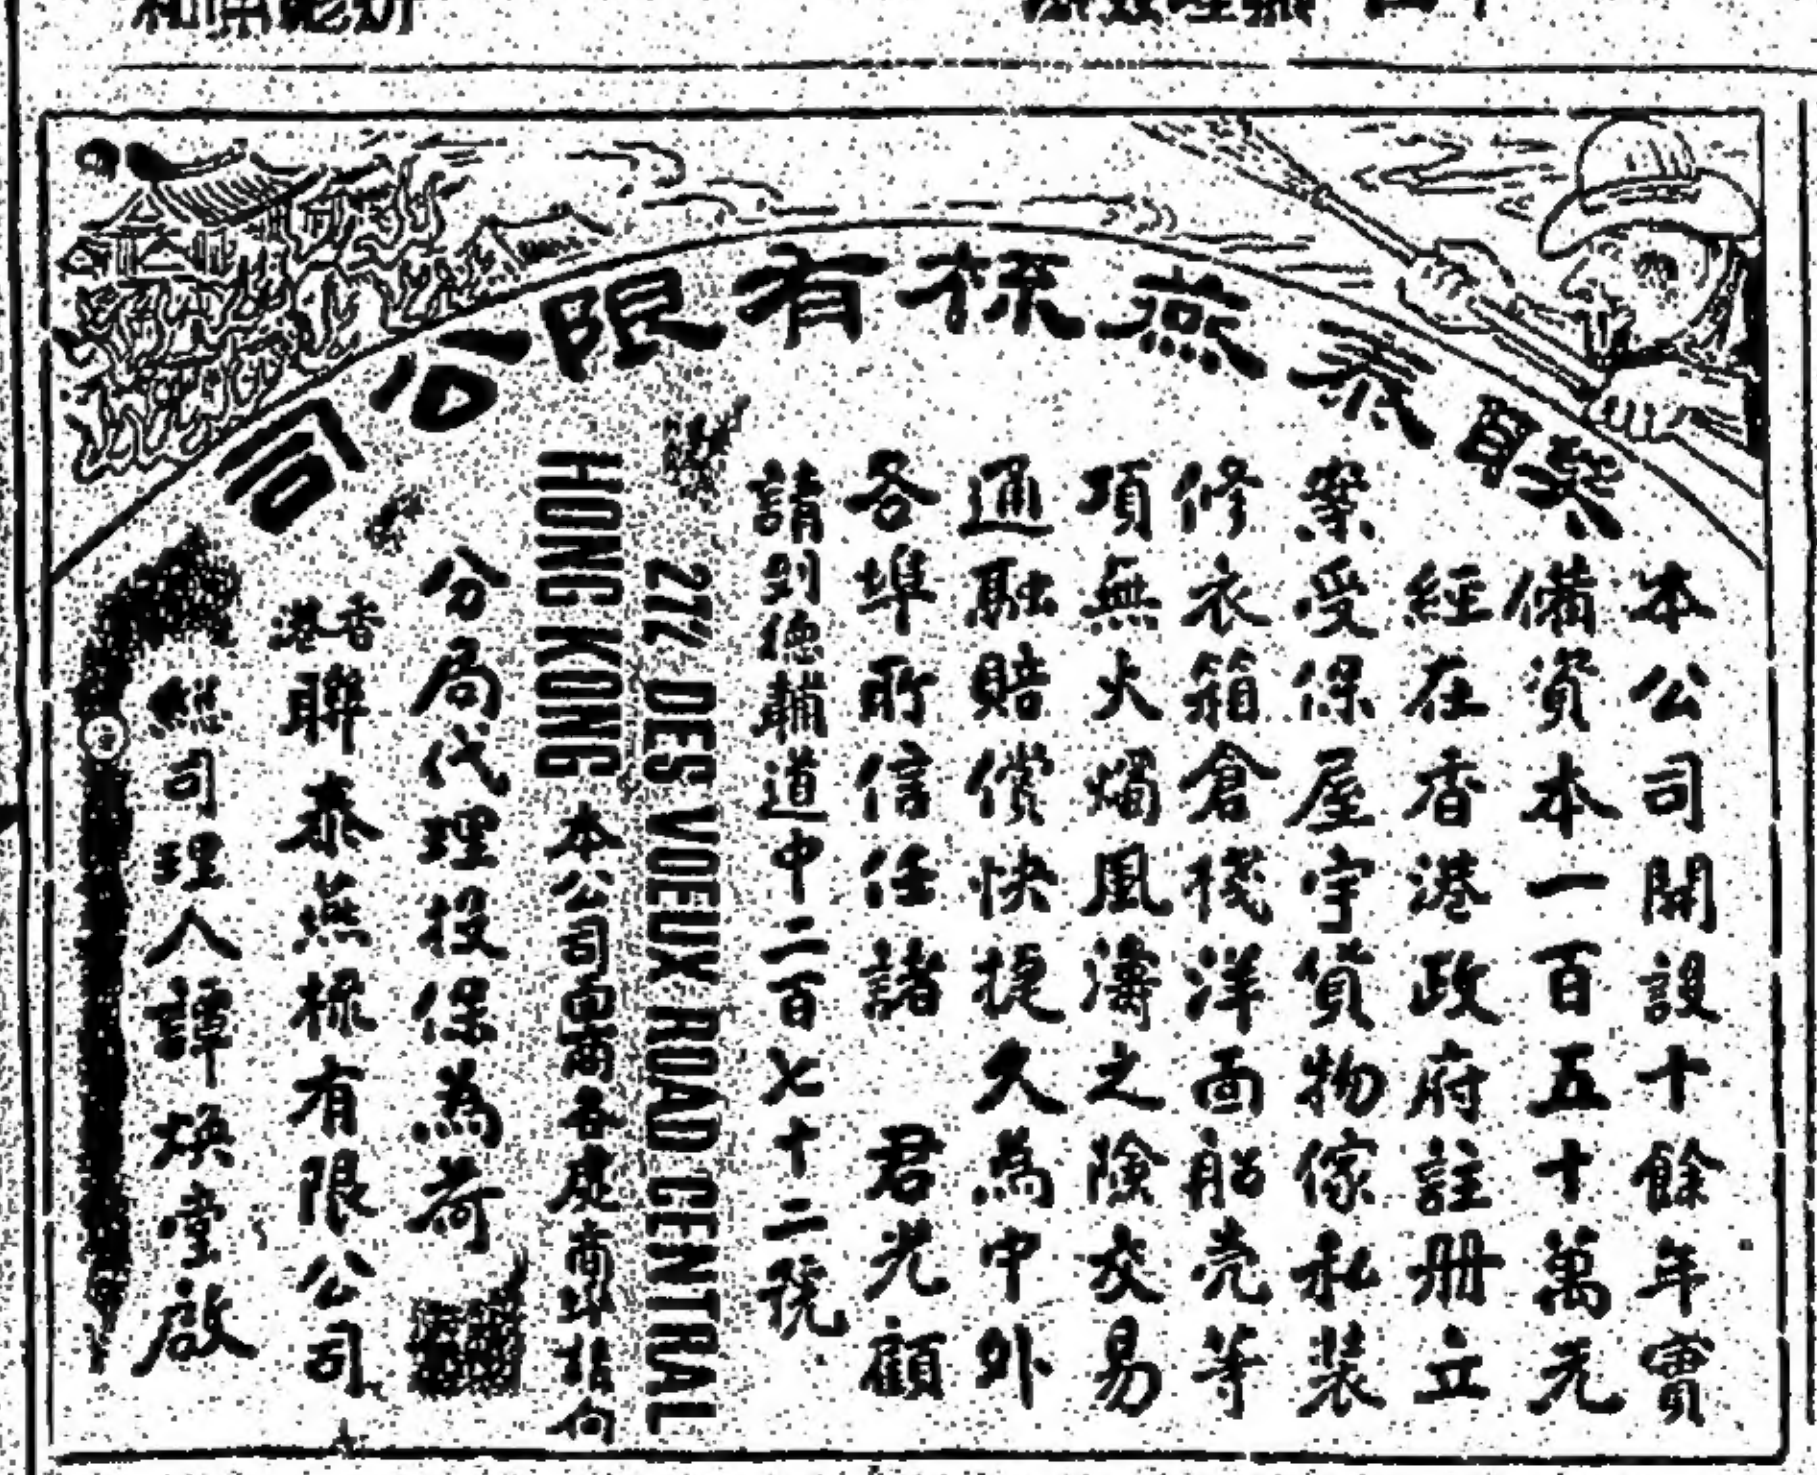 聯泰燕梳有限公司
本公司開設十餘年實
備資本一百五十萬元
經在香港政府註册立
案受保屋宇貨物傢私裝
修衣箱倉棧洋面船壳等
項無火燭風濤之險交易
通融賠償快捷久為中外
各埠所信任諸 君光顧
請到德輔道中二百七十二號
272 DES VOEUX ROAD CENTRAL
HONG KONG 本公司面商各處商埠向
分局代理投保為荷
香港聯泰燕梳有限公司
總司理人譚煥堂啟